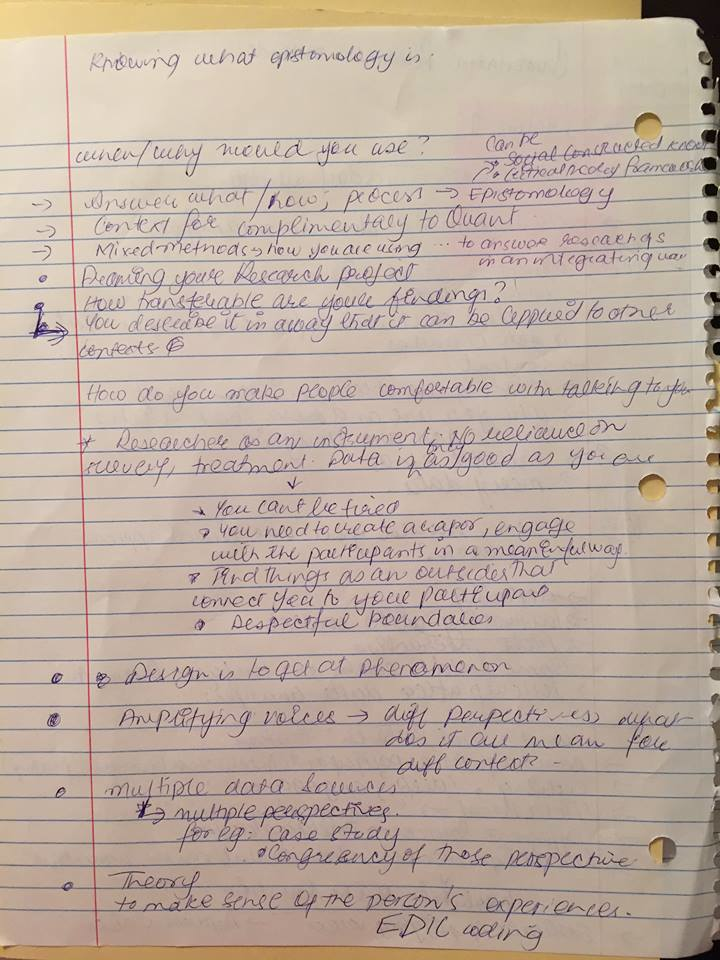 Knowing what epistomology is.
when/why would you use?
can be
→ social constructed know
→ critical theory framework
→ Answer what/how; process → Epistomology
→ Context for complimentary to Quant
→ Mixed methods → how you are using ... to answer research qs
in an integrating way
• Framing your Research project
• How transferable are your findings?
→ You describe it in a way that it can be applied to other
contexts
How do you make people comfortable with talking to you
* Researcher as an instrument; No reliance on
survey, treatment. Data is only as good as you are
↓
→ You cant be tired
→ You need to create a rapor, engage
with the participants in a meaningful way.
• Find things as an outsider that
connect you to your participant
• Respectful boundaries
• Design is to get at phenomenon
• Amplifying voices → diff perspectives, what
does it all mean for
diff contexts -
• multiple data sources
→ multiple perspectives.
for eg: Case study
• Congruency of those perspective
• Theory
to make sense of the person's experiences.
EDIC coding